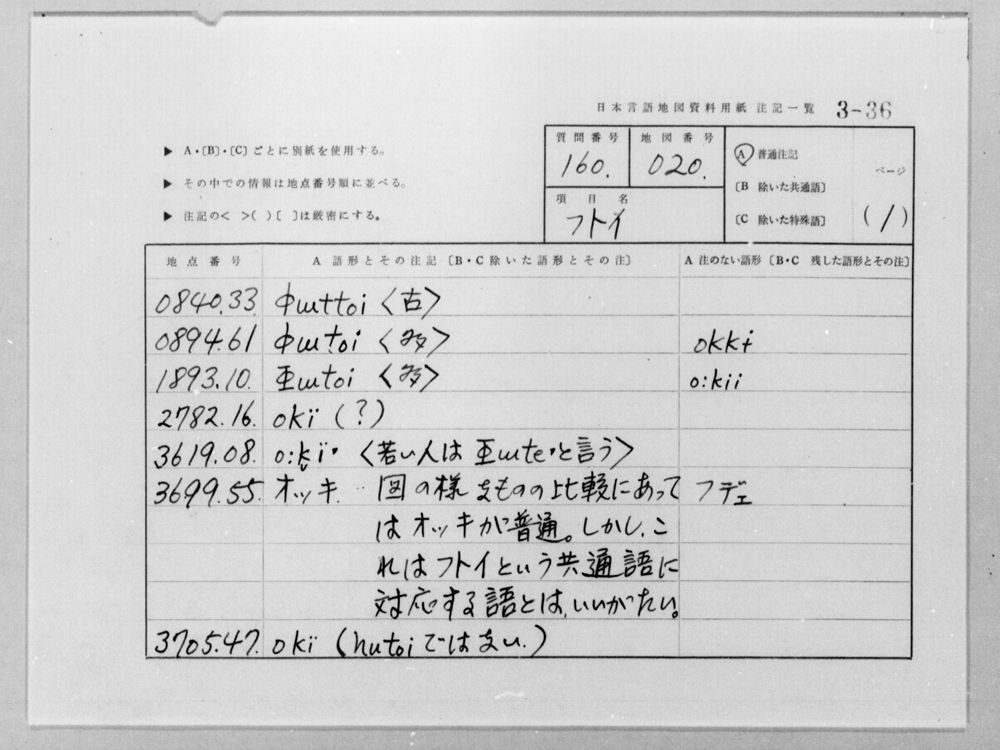 日本言語地図資料用紙 注記一覧 3-36
▶ A・〔B〕・〔C〕ごとに別紙を使用する。
▶ その中での情報は地点番号順に並べる。
▶ 注記の< >( )[ ]は厳密にする。
質問番号 地図番号
160. 020.
項目名
フトイ
Ⓐ 普通注記
〔B 除いた共通語〕
〔C 除いた特殊語〕
ページ
(1)
地点番号 A 語形とその注記〔B・C除いた語形とその注〕 A 注のない語形〔B・C 残した語形とその注〕
0840.33. ɸɯttoi〈古〉
0894.61 ɸɯtoi〈多〉 okkɨ
1893.10. ɸɯtoi〈多〉 o:kii
2782.16. okï (?)
3619.08. o:kï・〈若い人は ɸɯte・と言う〉
3699.55. オッキ 図の様なものの比較にあって フデェ
はオッキが普通。しかし、こ
れはフトイという共通語に
対応する語とは、いいがたい。
3705.47. okï (hutoiではない。)